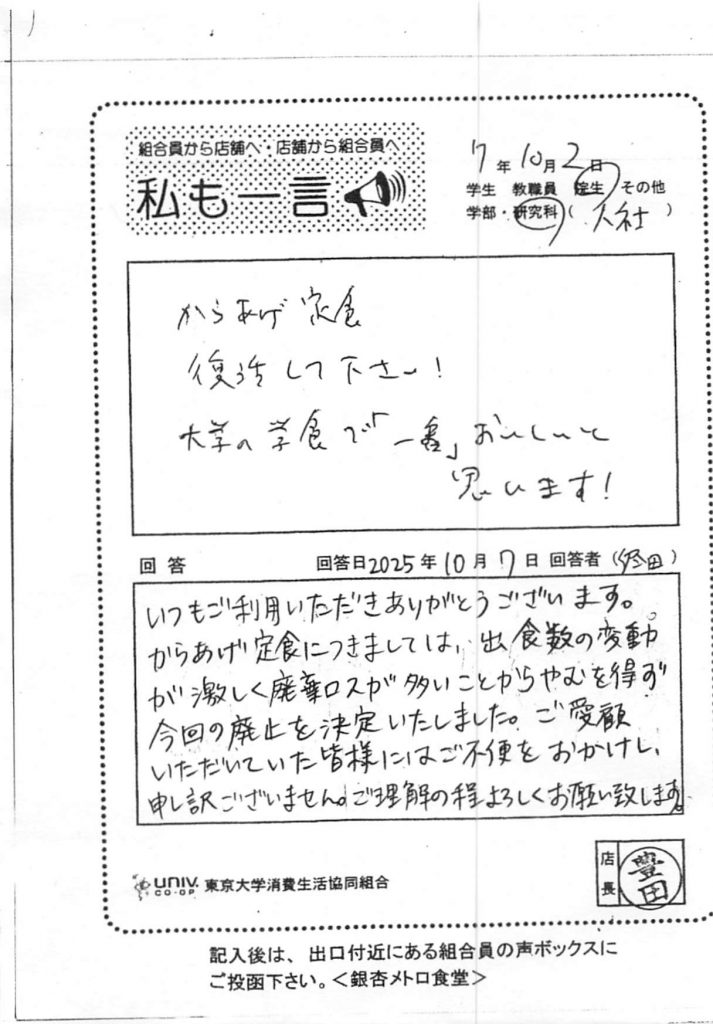 組合員から店舗へ・店舗から組合員へ
私も一言
7年10月2日
学生 教職員 院生 その他
学部・研究科（人社）
からあげ定食
復活して下さい！
大学の学食で「一番」おいしいと
思います！
回答 回答日2025年10月7日 回答者（豊田）
いつもご利用いただきありがとうございます。
からあげ定食につきましては、出食数の変動
が激しく廃棄ロスが多いことからやむを得ず
今回の廃止を決定いたしました。ご愛顧
いただいていた皆様にはご不便をおかけし、
申し訳ございません。ご理解の程よろしくお願い致します。
店長 豊田
UNIV. CO-OP 東京大学消費生活協同組合
記入後は、出口付近にある組合員の声ボックスに
ご投函下さい。＜銀杏メトロ食堂＞